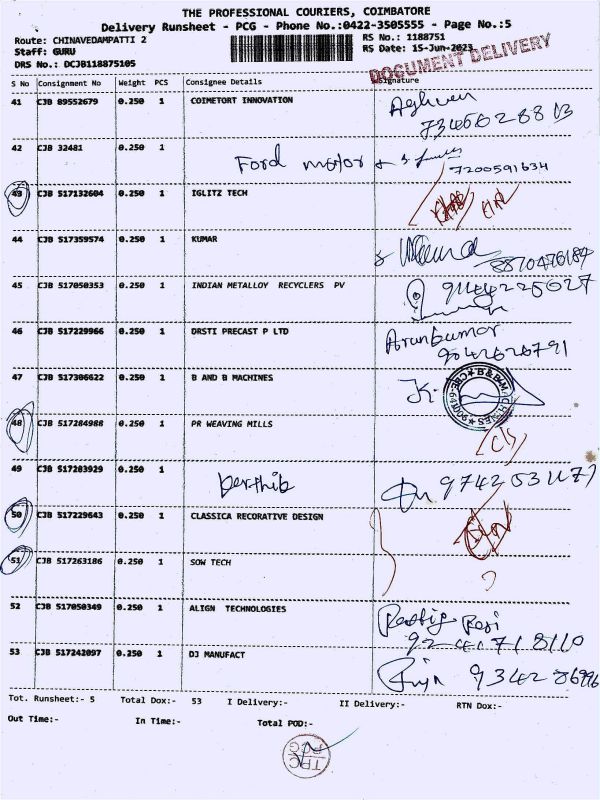 THE PROFESSIONAL COURIERS, COIMBATORE
Delivery Runsheet - PCG - Phone No.:0422-3505555 - Page No.:5
Route: CHINAVEDAMPATTI 2
RS No.: 1188751
Staff: GURU
RS Date: 15-Jun-2023
DRS No.: DCJB118875105
DOCUMENT DELIVERY
S No Consignment No Weight PCS Consignee Details Signature
41 CJB 89552679 0.250 1 COIMETORT INNOVATION
42 CJB 32481 0.250 1 Ford motor
7200591634
43 CJB 517132604 0.250 1 IGLITZ TECH
44 CJB 517359574 0.250 1 KUMAR
8870476184
45 CJB 517050353 0.250 1 INDIAN METALLOY RECYCLERS PV
46 CJB 517229966 0.250 1 DRSTI PRECAST P LTD Arunkumar
47 CJB 517306622 0.250 1 B AND B MACHINES
48 CJB 517284988 0.250 1 PR WEAVING MILLS
49 CJB 517283929 0.250 1
50 CJB 517229643 0.250 1 CLASSICA RECORATIVE DESIGN
51 CJB 517263186 0.250 1 SOW TECH
52 CJB 517050349 0.250 1 ALIGN TECHNOLOGIES
53 CJB 517242097 0.250 1 DJ MANUFACT
Tot. Runsheet:- 5 Total Dox:- 53 I Delivery:- II Delivery:- RTN Dox:-
Out Time:- In Time:- Total POD:-